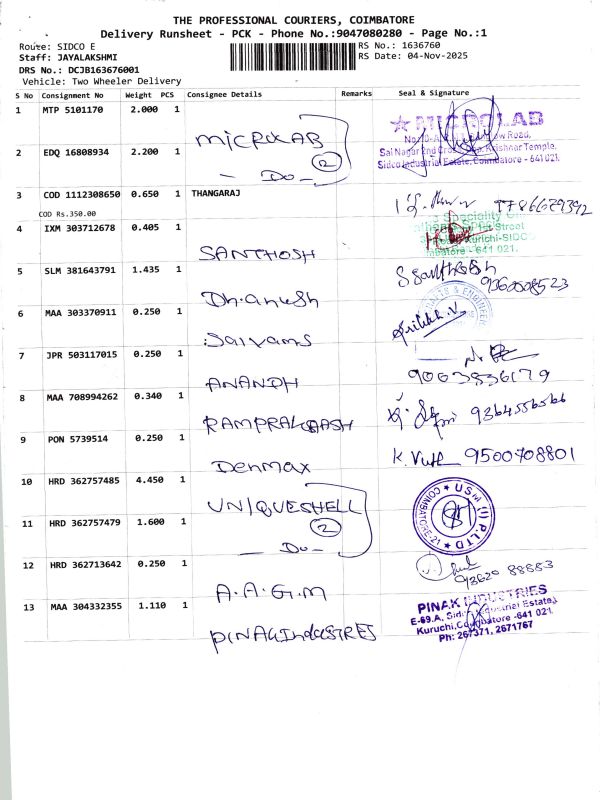 THE PROFESSIONAL COURIERS, COIMBATORE
Delivery Runsheet - PCK - Phone No.:9047080280 - Page No.:1
Route: SIDCO E
RS No.: 1636760
Staff: JAYALAKSHMI
RS Date: 04-Nov-2025
DRS No.: DCJB163676001
Vehicle: Two Wheeler Delivery
S No Consignment No Weight PCS Consignee Details Remarks Seal & Signature
1 MTP 5101170 2.000 1
MICROLAB
MICROLAB
2 EDQ 16808934 2.200 1
2
- Do -
Sidco Industrial Estate, Coimbatore - 641 021.
3 COD 1112308650 0.650 1 THANGARAJ
COD Rs.350.00
4 IXM 303712678 0.405 1
SANTHOSH
Kurichi-SIDCO
- 641 021.
5 SLM 381643791 1.435 1
Dhanush
Ssanthosh
9360008523
6 MAA 303370911 0.250 1
Saivams
7 JPR 503117015 0.250 1
ANANDH
9003836179
8 MAA 708994262 0.340 1
RAMPRAKASH
9364556566
9 PON 5739514 0.250 1
Denmax
9500708801
10 HRD 362757485 4.450 1
UNIQUESHELL
USM (I) P.LTD
COIMBATORE-21
11 HRD 362757479 1.600 1
2
- Do -
12 HRD 362713642 0.250 1
A.A.G.M
93620 88883
13 MAA 304332355 1.110 1
PINAK IndUSTRES
PINAK INDUSTRIES
E-69.A, Sidco Industrial Estate,
Kuruchi, Coimbatore - 641 021.
Ph: 267371, 2671767